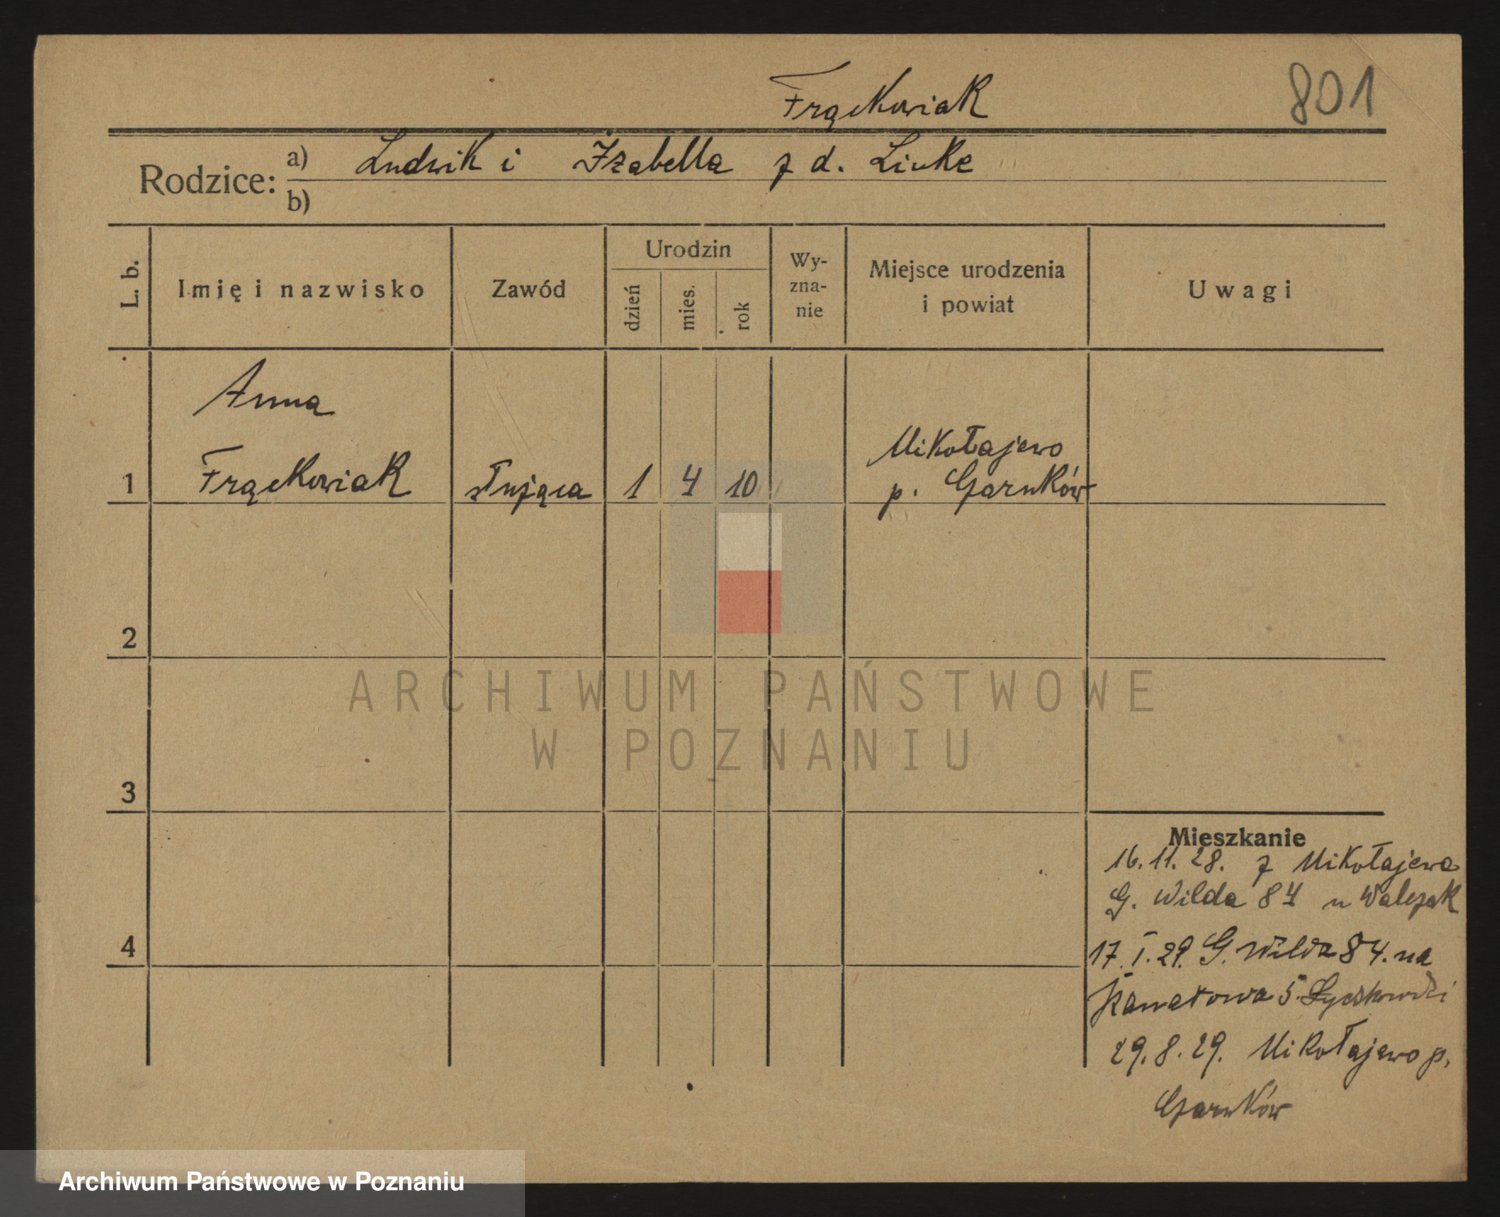 Frąckowiak
801
Rodzice:
a) Ludwik i Izabella z d. Linke
b)
L. b.
Imię i nazwisko
Zawód
Urodzin
dzień
mies.
rok
Wy-
zna-
nie
Miejsce urodzenia
i powiat
Uwagi
Anna
Mikołajewo
1 Frąckowiak służąca 1 4 10 p. Czarnków
2
3
4
ARCHIWUM PAŃSTWOWE
W POZNANIU
Mieszkanie
16. 11. 28. z Mikołajewa
G. Wilda 84 u Walczak
17. I. 29. G. Wilda 84. na
5.
29. 8. 29. Mikołajewo p.
Czarnków
Archiwum Państwowe w Poznaniu